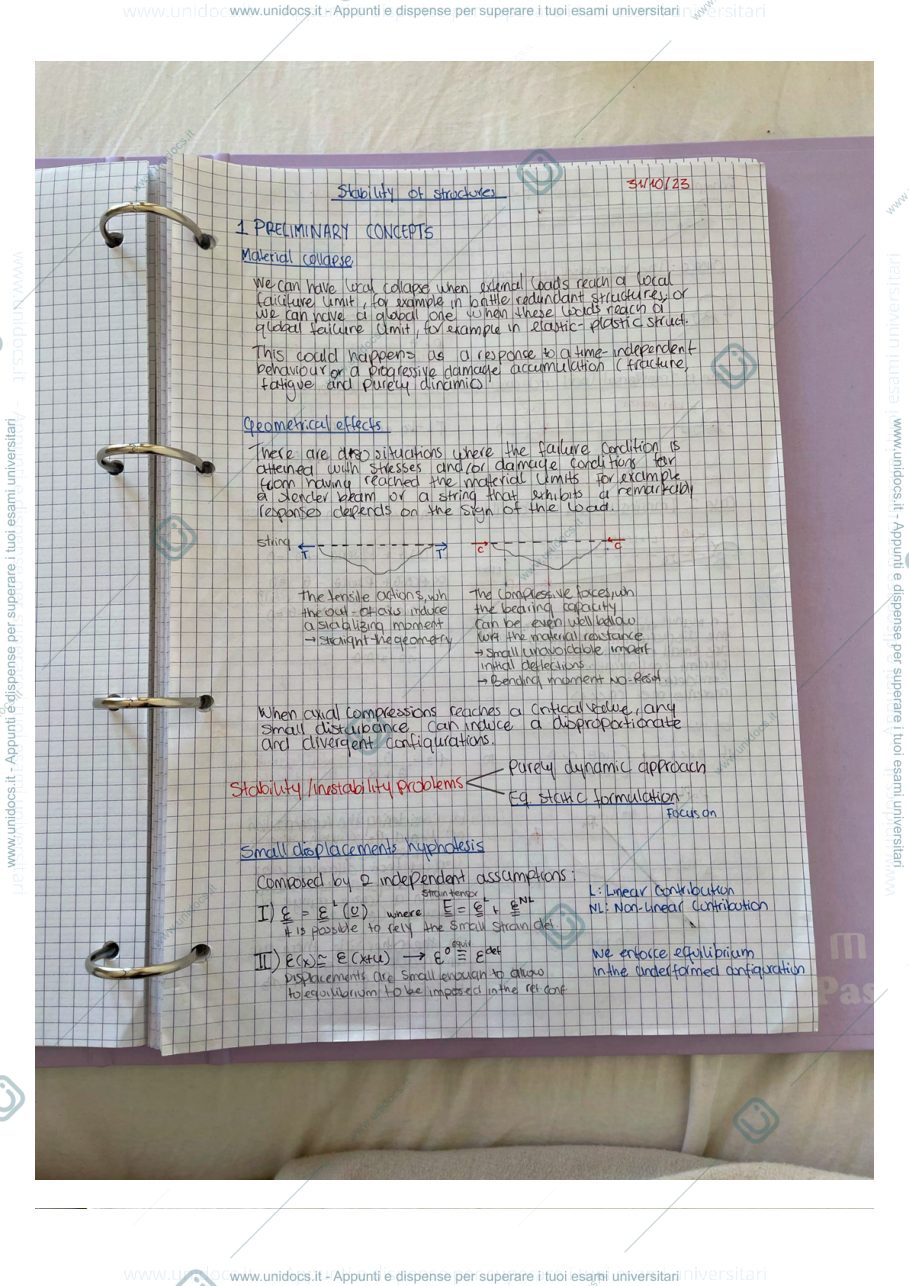 www.unidocs.it - Appunti e dispense per superare i tuoi esami universitari
Stability of structures
31/10/23
1 PRELIMINARY CONCEPTS
Material collapse
We can have local collapse when external loads reach a local
failure limit, for example in brittle redundant structures, or
we can have a global one when these loads reach a
global failure limit, for example in elastic-plastic struct.
This could happens as a response to a time-independent
behaviour or a progressive damage accumulation (fracture,
fatigue and purely dinamics
Geometrical effects
There are also situations where the failure condition is
attained with stresses and/or damage conditions far
from having reached the material limits for example
a slender beam or a string that exhibits a remarkably
responses depends on the sign of the load.
string T T C C
The tensile actions, wh
the out-of-axis induce
a stabilizing moment
→ straight the geometry
The compressive forces, wh
the bearing capacity
can be even well bellow
wrt the material resistance
→ Small unavoidable imperf
initial deflections
→ Bending moment NO-Resist
When axial compressions reaches a critical value, any
small disturbance can induce a disproportionate
and divergent configurations.
Stability/inestability problems
Purely dynamic approach
Eq. static formulation
Focus on
Small displacements hypholesis
Composed by 2 independent assumptions:
L: Linear Contribution
NL: Non-Linear Contribution
Strain tensor
I) ε = ε^L (u) where E = ε^L + ε^NL
it is possible to rely the small strain def.
II) ε(x) ≅ ε(x+u) → ε^0 ≡ ε^def
equiv
Displacements are small enough to allow
to equilibrium to be imposed in the ref conf
we enforce equilibrium
in the underformed configuration
m
Pas
www.unidocs.it - Appunti e dispense per superare i tuoi esami universitari
www.unidocs.it - Appunti e dispense per superare i tuoi esami universitari
www.unidocs.it - Appunti e dispense per superare i tuoi esami universitari